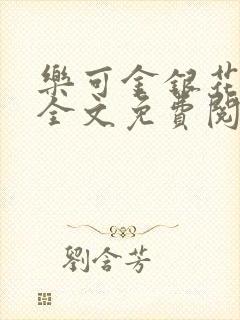 樂可金銀花
全文免費閱
劉含芳